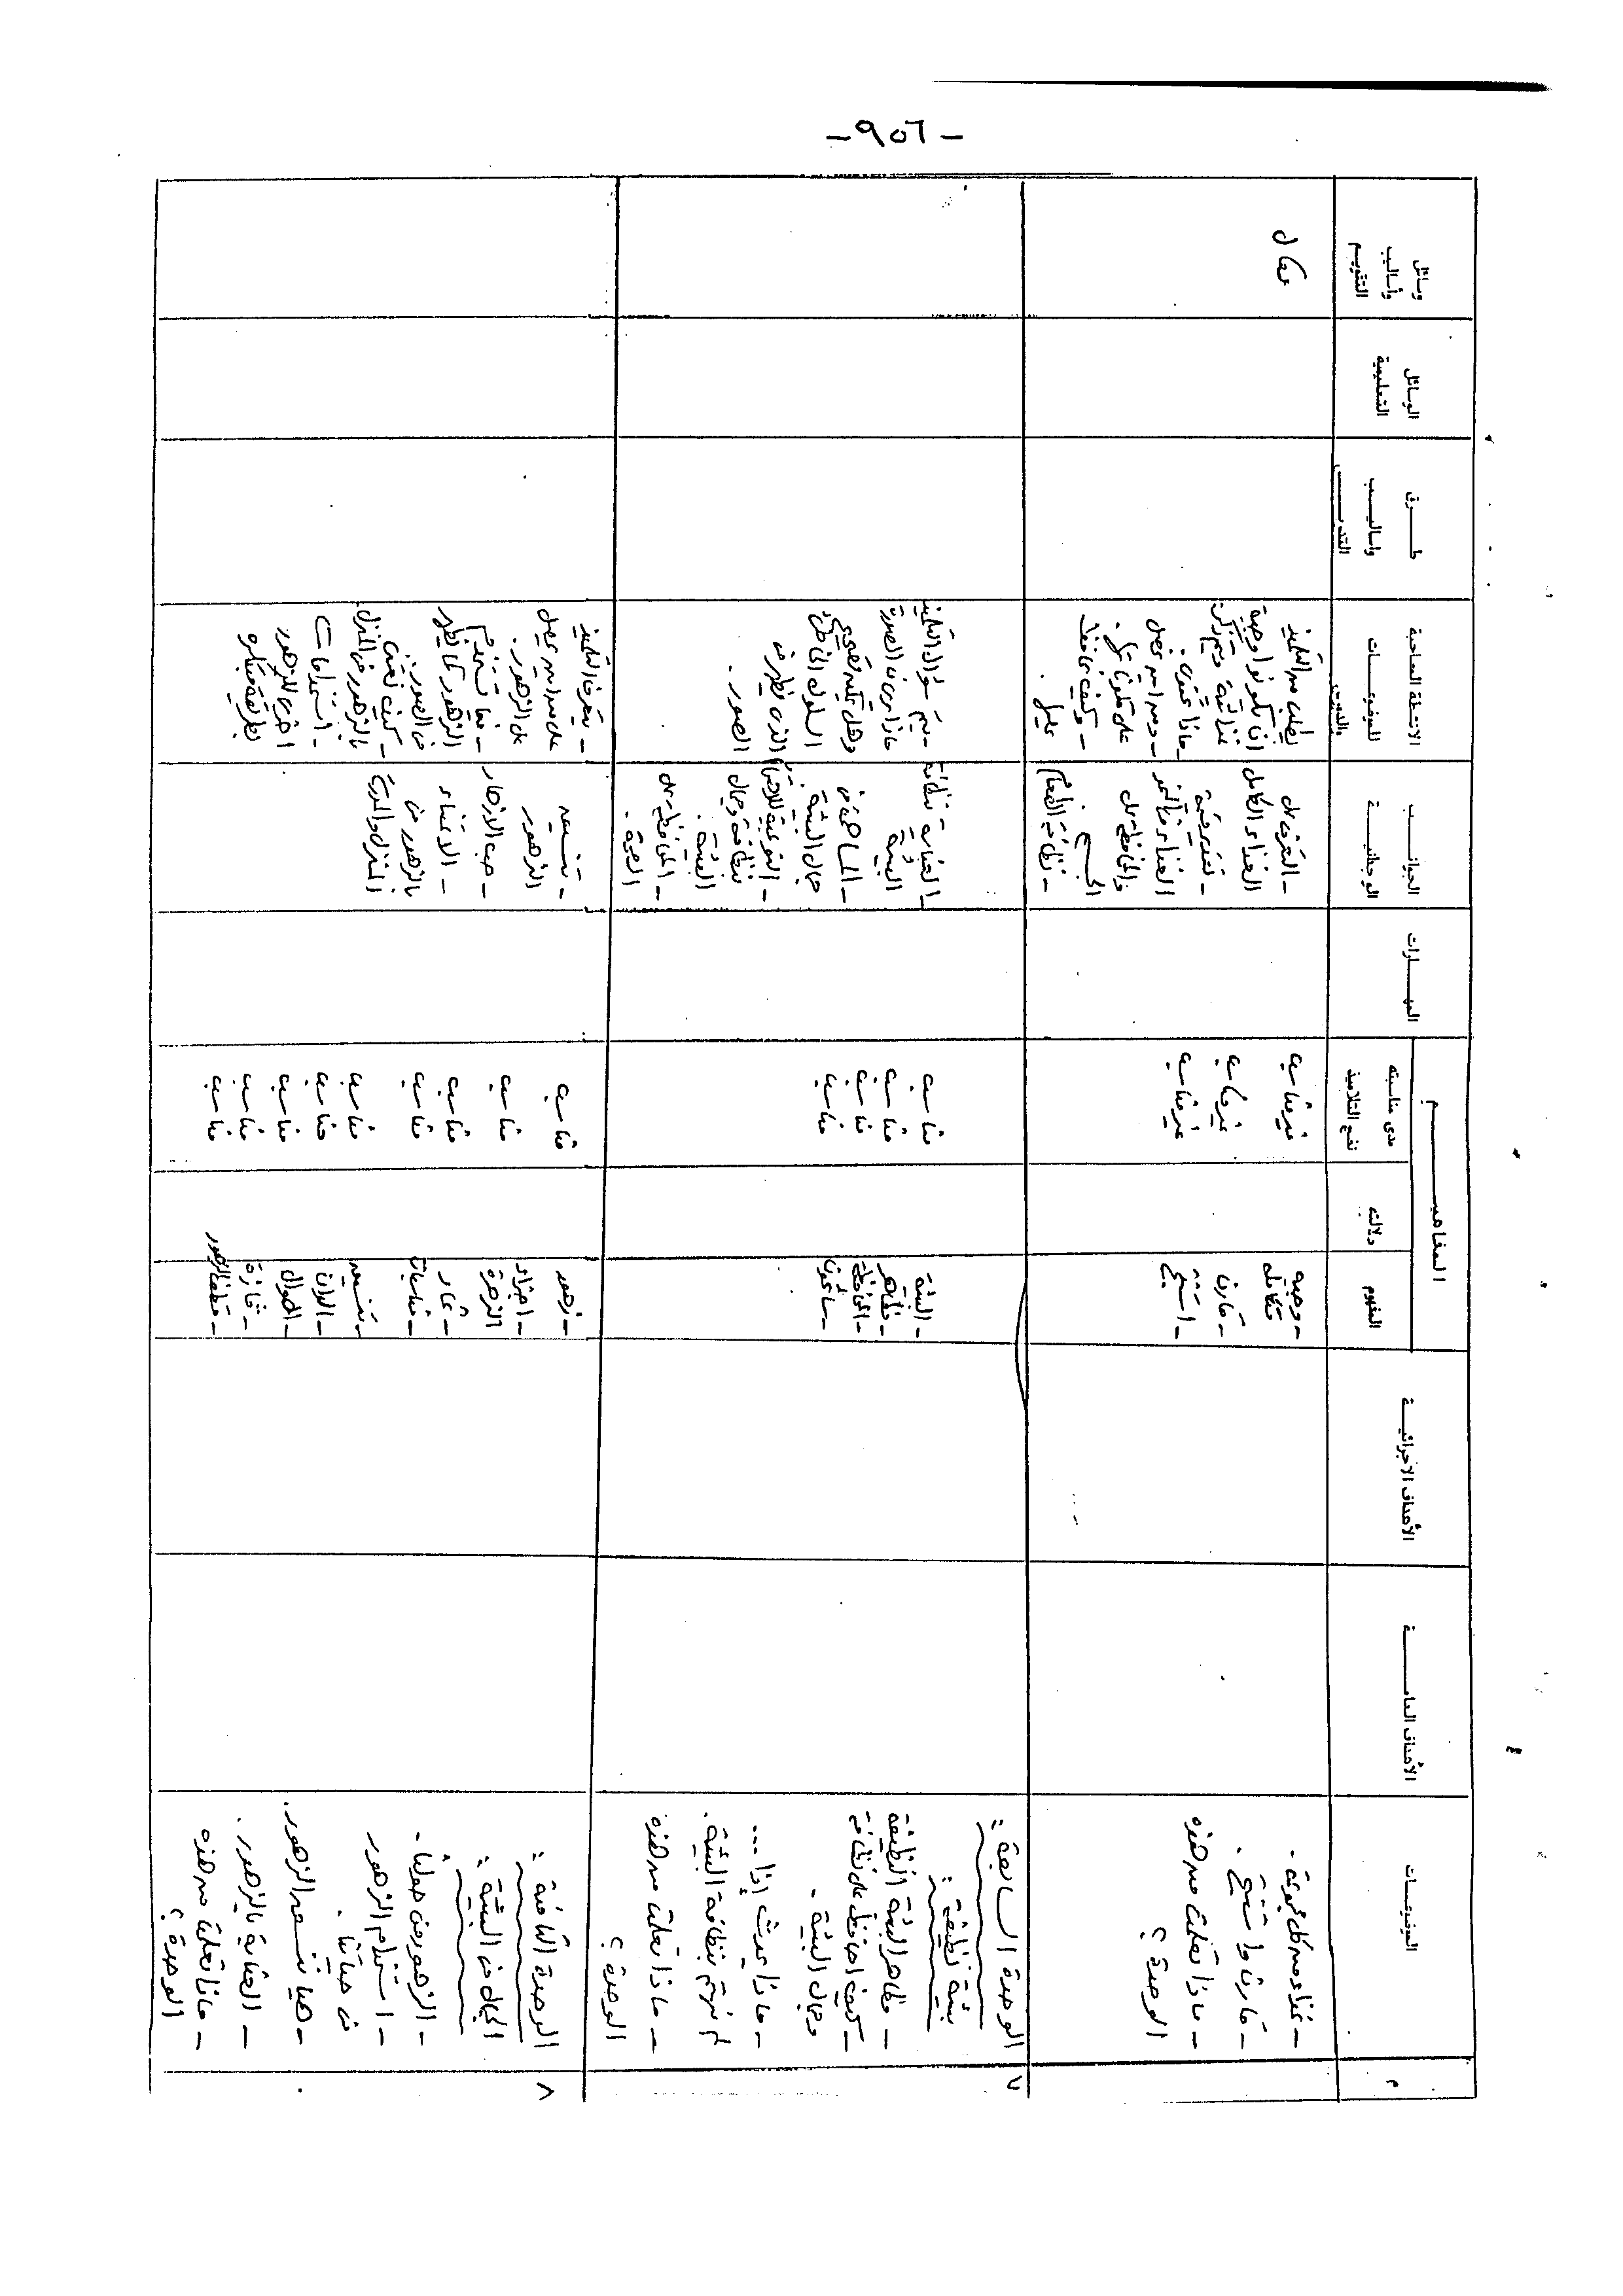 -٩٥٦-
م
الموضوعــــات
الأهداف العامــــــة
الأهداف الاجرائيـــة
المفاهيــــــــم
المفهوم
دلالته
مدى مناسبته
نضج التلاميذ
المهــــارات
الجوانــــب
الوجدانيـــة
الانشطة المصاحبة
للموضوعــــات
طــــرق
واساليــــب
التدريــــس
الوسائل
التعليمية
وسائل
وأساليب
التقويم
- غذاء من كل مجموعة .
- قارن واستنتج .
- ماذا تعلمت من هذه
الوحدة ؟
- وجبة
متكاملة
- قارن
- استنتج
غير مناسب
غير مناسب
غير مناسب
- التعرف على
الغذاء الكامل
- تقدير قيمة
الغذاء
والمحافظة على
الجسم
- نظافة الطعام
يطلب من التلاميذ
ان يكونوا وجبة
غذائية
- ماذا تحتوى .
على مكونات .
مقال
٧
الوحدة الســابعة :
بيئة نظيفة :
- مظاهر البيئة النظيفة
- كيف احافظ على نظافة
وجمال البيئة .
- ماذا يحدث إذا ...
لم نهتم بنظافة البيئة .
- ماذا تعلمت من هذه
الوحدة ؟
- البيئة
- مظاهر
- المحافظة
مناسب
مناسب
مناسب
مناسب
- العناية بنظافة
البيئة
جمال البيئة
نظافة وجمال
البيئة .
- المحافظة على
الصحة .
- يتم سؤال التلاميذ
ماذا يرون فى الصورة
السلوك الخاطئ
الصور .
٨
الوحدة الثامنة :
الجمال فى البيئة :
- الزهور من حولنا .
- استخدام الزهور
فى حياتنا .
- هيا ننسق الزهور .
- العناية بالزهور .
- ماذا تعلمت من هذه
الوحدة ؟
- زهور
- اجزاء
الزهرة
- ثمار
- مناسبات
- تنسيق
- الوان
- اطوال
- قطف الزهور
مناسب
مناسب
مناسب
مناسب
مناسب
مناسب
مناسب
مناسب
مناسب
- تنسيق
الزهور
- حب الازهار
- الاعتناء
بالزهور فى
المنزل والمدرسة
- يتعرف التلاميذ
على الزهور .
- فيما تستخدم
الزهور كما يظهر
فى الصور .
- كيف تعتنى
بالزهور فى المنزل
- استخدامات
اخرى للزهور
بطريقة مبتكرة